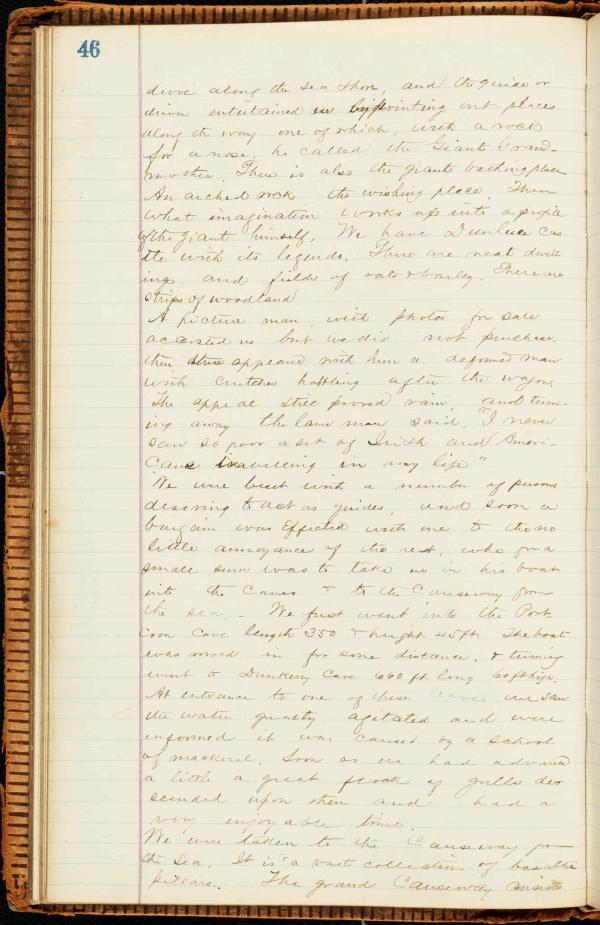 46
drove along the sea shore, and the guide or
driver entertained us by pointing out places
along the way one of which, with a rock
for a nose, he called the Giants Grand-
mother. There is also the giants bathing place
An arched rock the wishing place. Then
what imagination works up into a profile
of the giant himself. We have Dunluce cas-
tle with its legends. There are neat dwell
ings, and fields of oats & barley. There are
strips of woodland
A picture man, with photos for sale
accosted us but we did not purchase.
then appeared with him a deformed man
with crutches hobbling after the wagon.
The appeal still proved vain, and turn-
ing away the lame man said, "I never
saw so poor a set of Irish and Ameri-
cans travelling in my life"
We were beset with a number of persons
desiring to act as guides, and soon a
bargain was effected with one to the no
little annoyance of the rest, who for a
small sum was to take us in his boat
into the Caves & to the Causeway from
the sea. - We first went into the Port
Coon Cave length 350 & height 45 ft The boat
was rowed in for some distance, & turning
went to Dunkerry Cave 660 ft long 60 ft high.
At entrance to one of these caves we saw
the water greatly agitated and were
informed it was caused by a school
of mackerel. Soon as we had advanced
a little a great flock of gulls des
scended upon them and had a
very enjoyable time.
We were taken to the Causeway from
the sea. It is a vast collection of basaltic
pillars. The grand Causeway consists